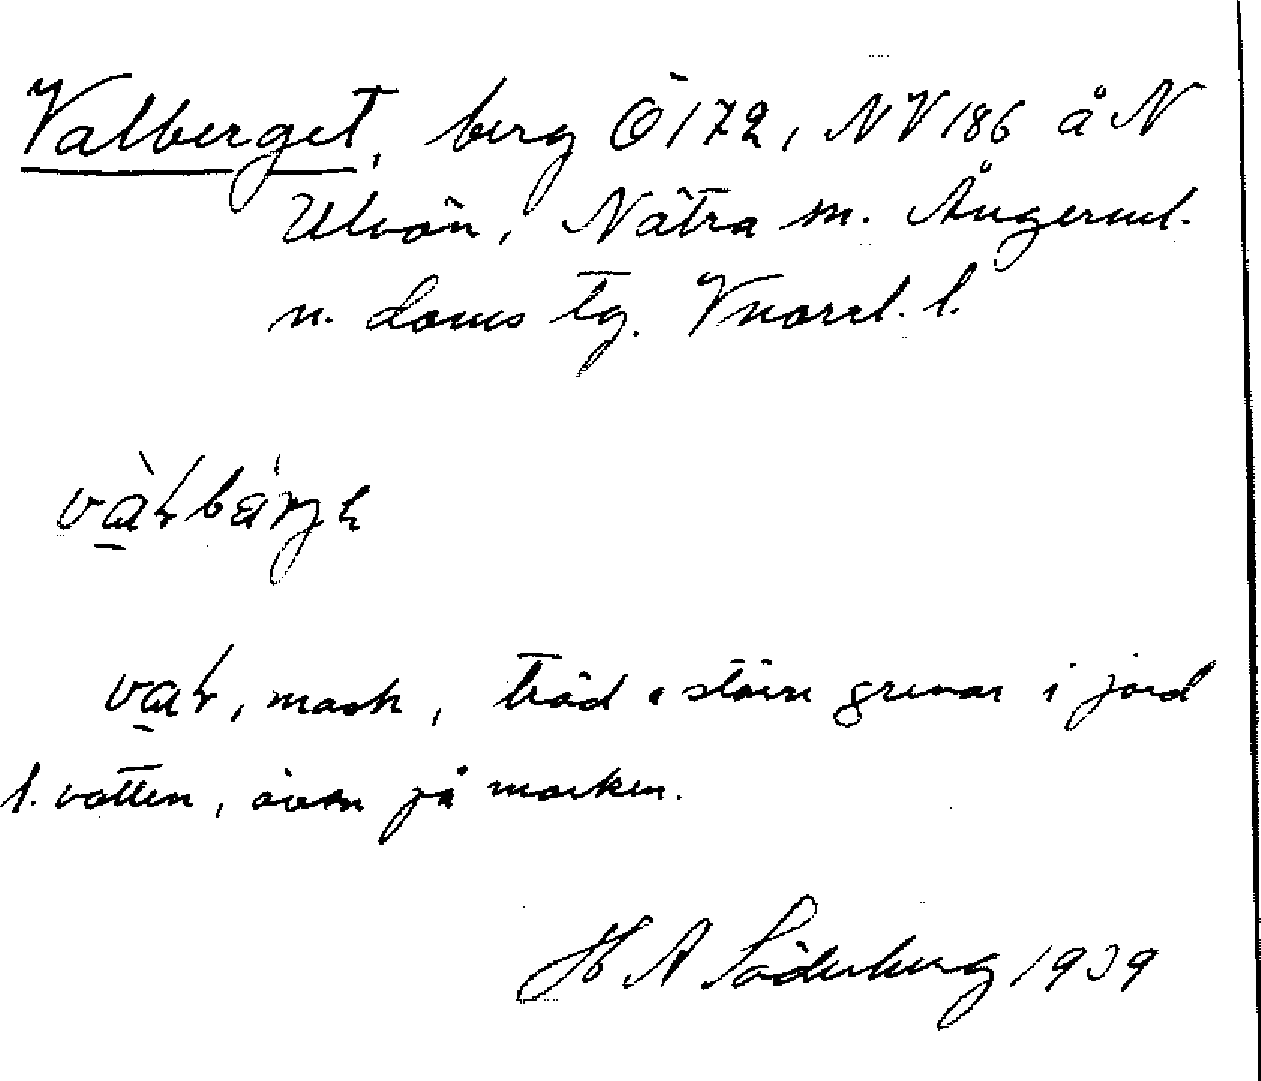 Valberget, berg Ö 172, NV 186 å N
Ulvön, Nätra sn. Ångerml.
n. doms tg. Vnorrl. l.
vàɫbárjɛ
vaɫ, mask, träd o större grenar i jord
l. vatten, även på marken.
H A Söderberg 1939